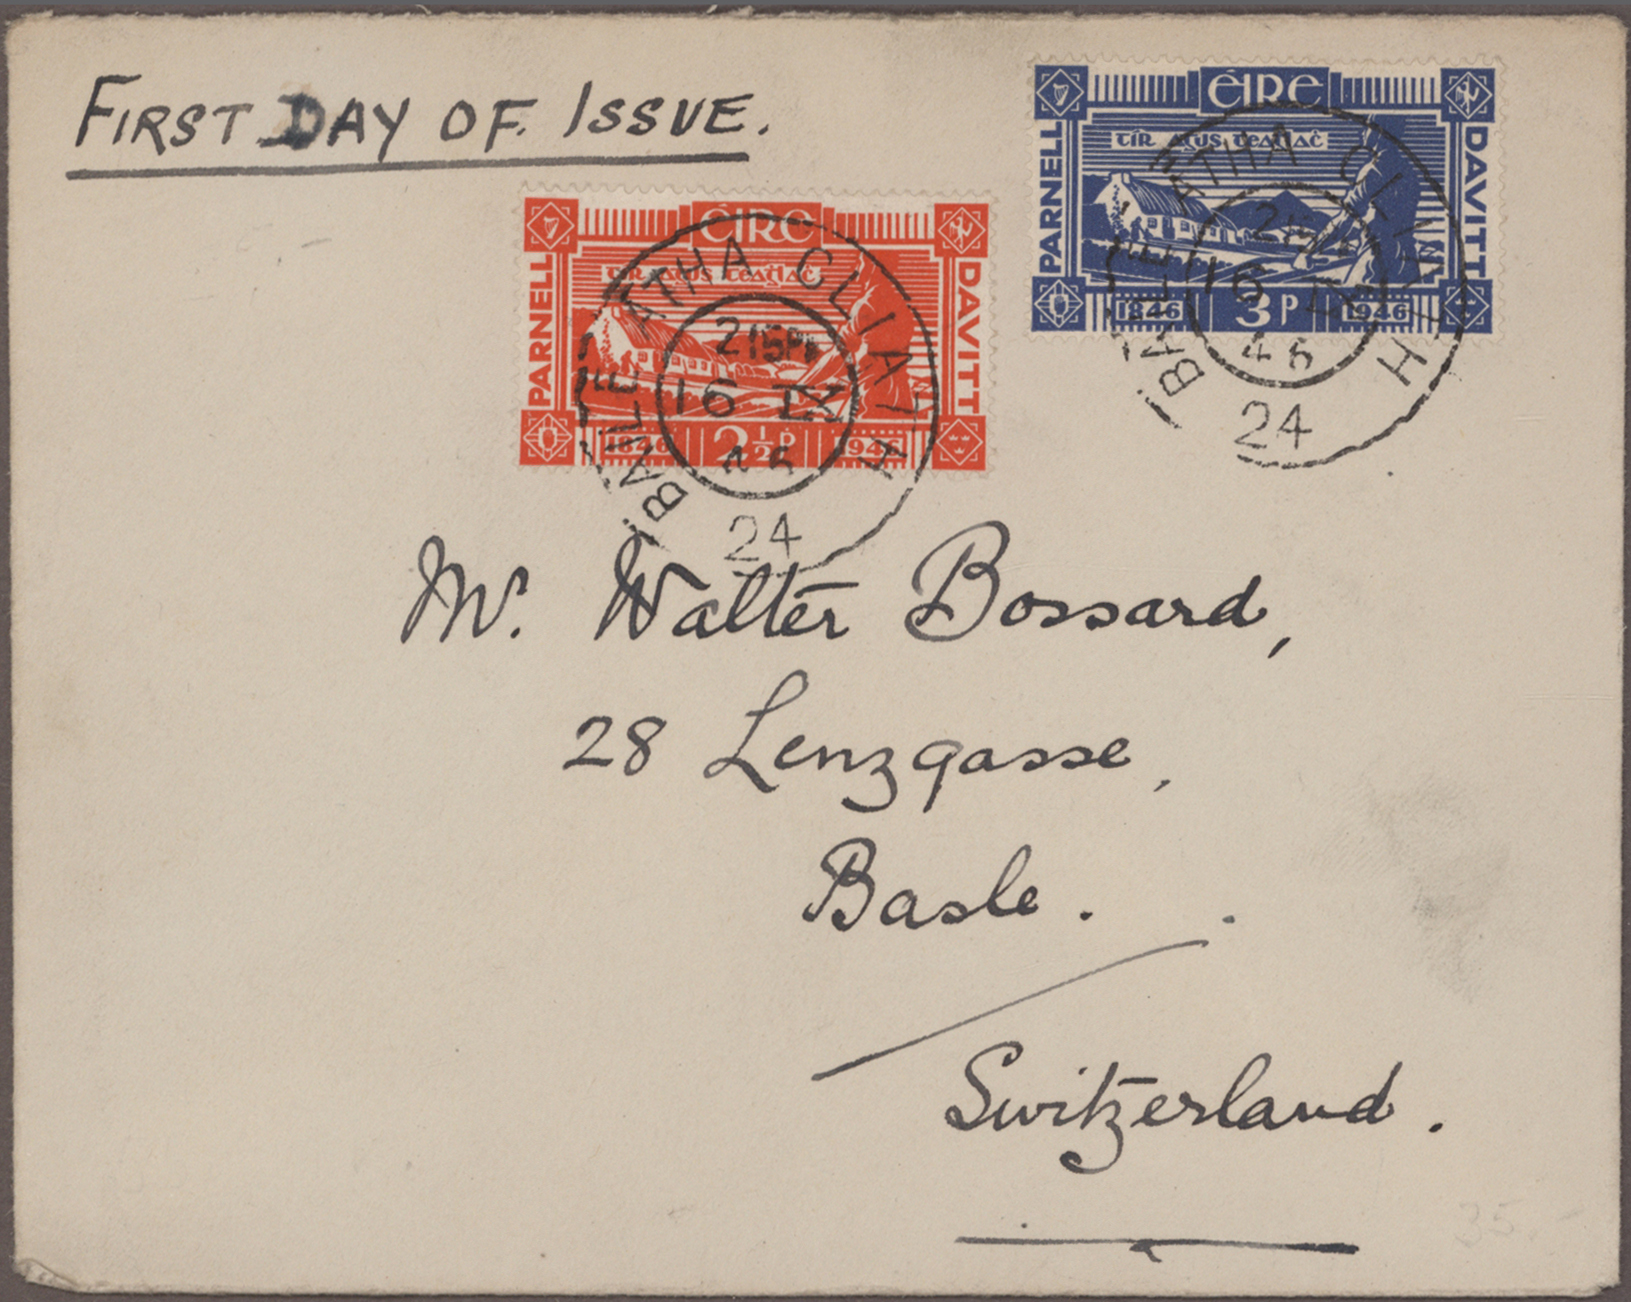 FIRST DAY OF ISSUE.
ÉIRE
tír agus teaġlaċ
PARNELL
DAVITT
1846 3p 1946
BAILE ÁTHA CLIATH
215PM
16 IX
46
24
ÉIRE
tír agus teaġlaċ
PARNELL
DAVITT
1846 2½p 1946
BAILE ÁTHA CLIATH
215PM
16 IX
46
24
Mr. Walter Bossard,
28 Lenzgasse,
Basle.
Switzerland.
35.-